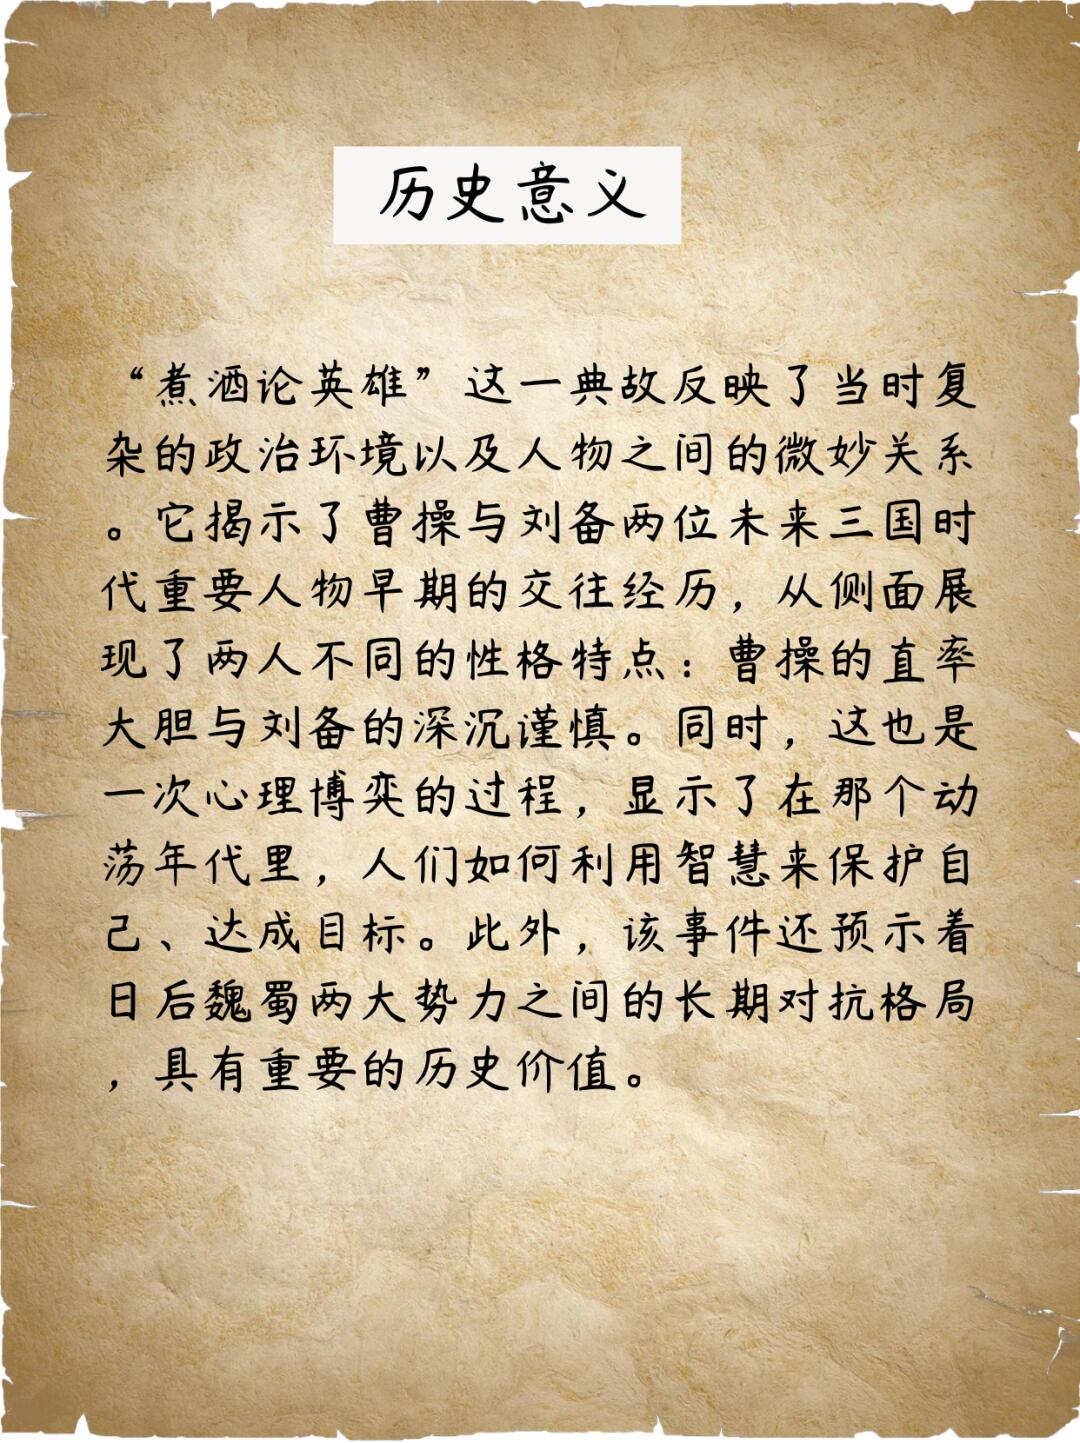 历史意义
“煮酒论英雄”这一典故反映了当时复
杂的政治环境以及人物之间的微妙关系
。它揭示了曹操与刘备两位未来三国时
代重要人物早期的交往经历，从侧面展
现了两人不同的性格特点：曹操的直率
大胆与刘备的深沉谨慎。同时，这也是
一次心理博弈的过程，显示了在那个动
荡年代里，人们如何利用智慧来保护自
己、达成目标。此外，该事件还预示着
日后魏蜀两大势力之间的长期对抗格局
，具有重要的历史价值。